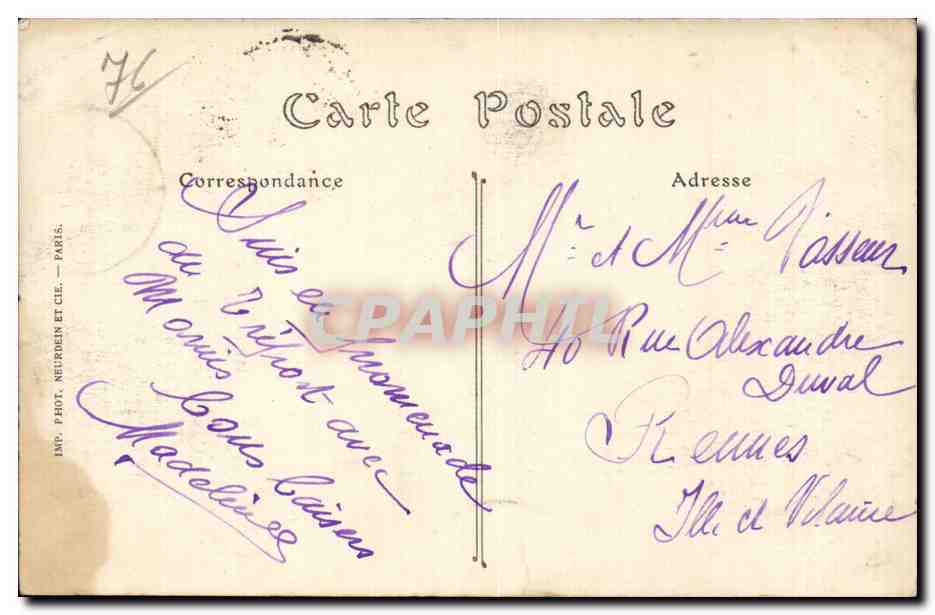 76
Carte Postale
Correspondance
Suis en promenade
au Tréport avec
Marius
bons baisers
Madeleine
Adresse
Mr et Mme Vasseur
40 Rue Alexandre
Duval
Rennes
Ille et Vilaine
IMP. PHOT. NEURDEIN ET CIE. — PARIS.
CPAPHIL